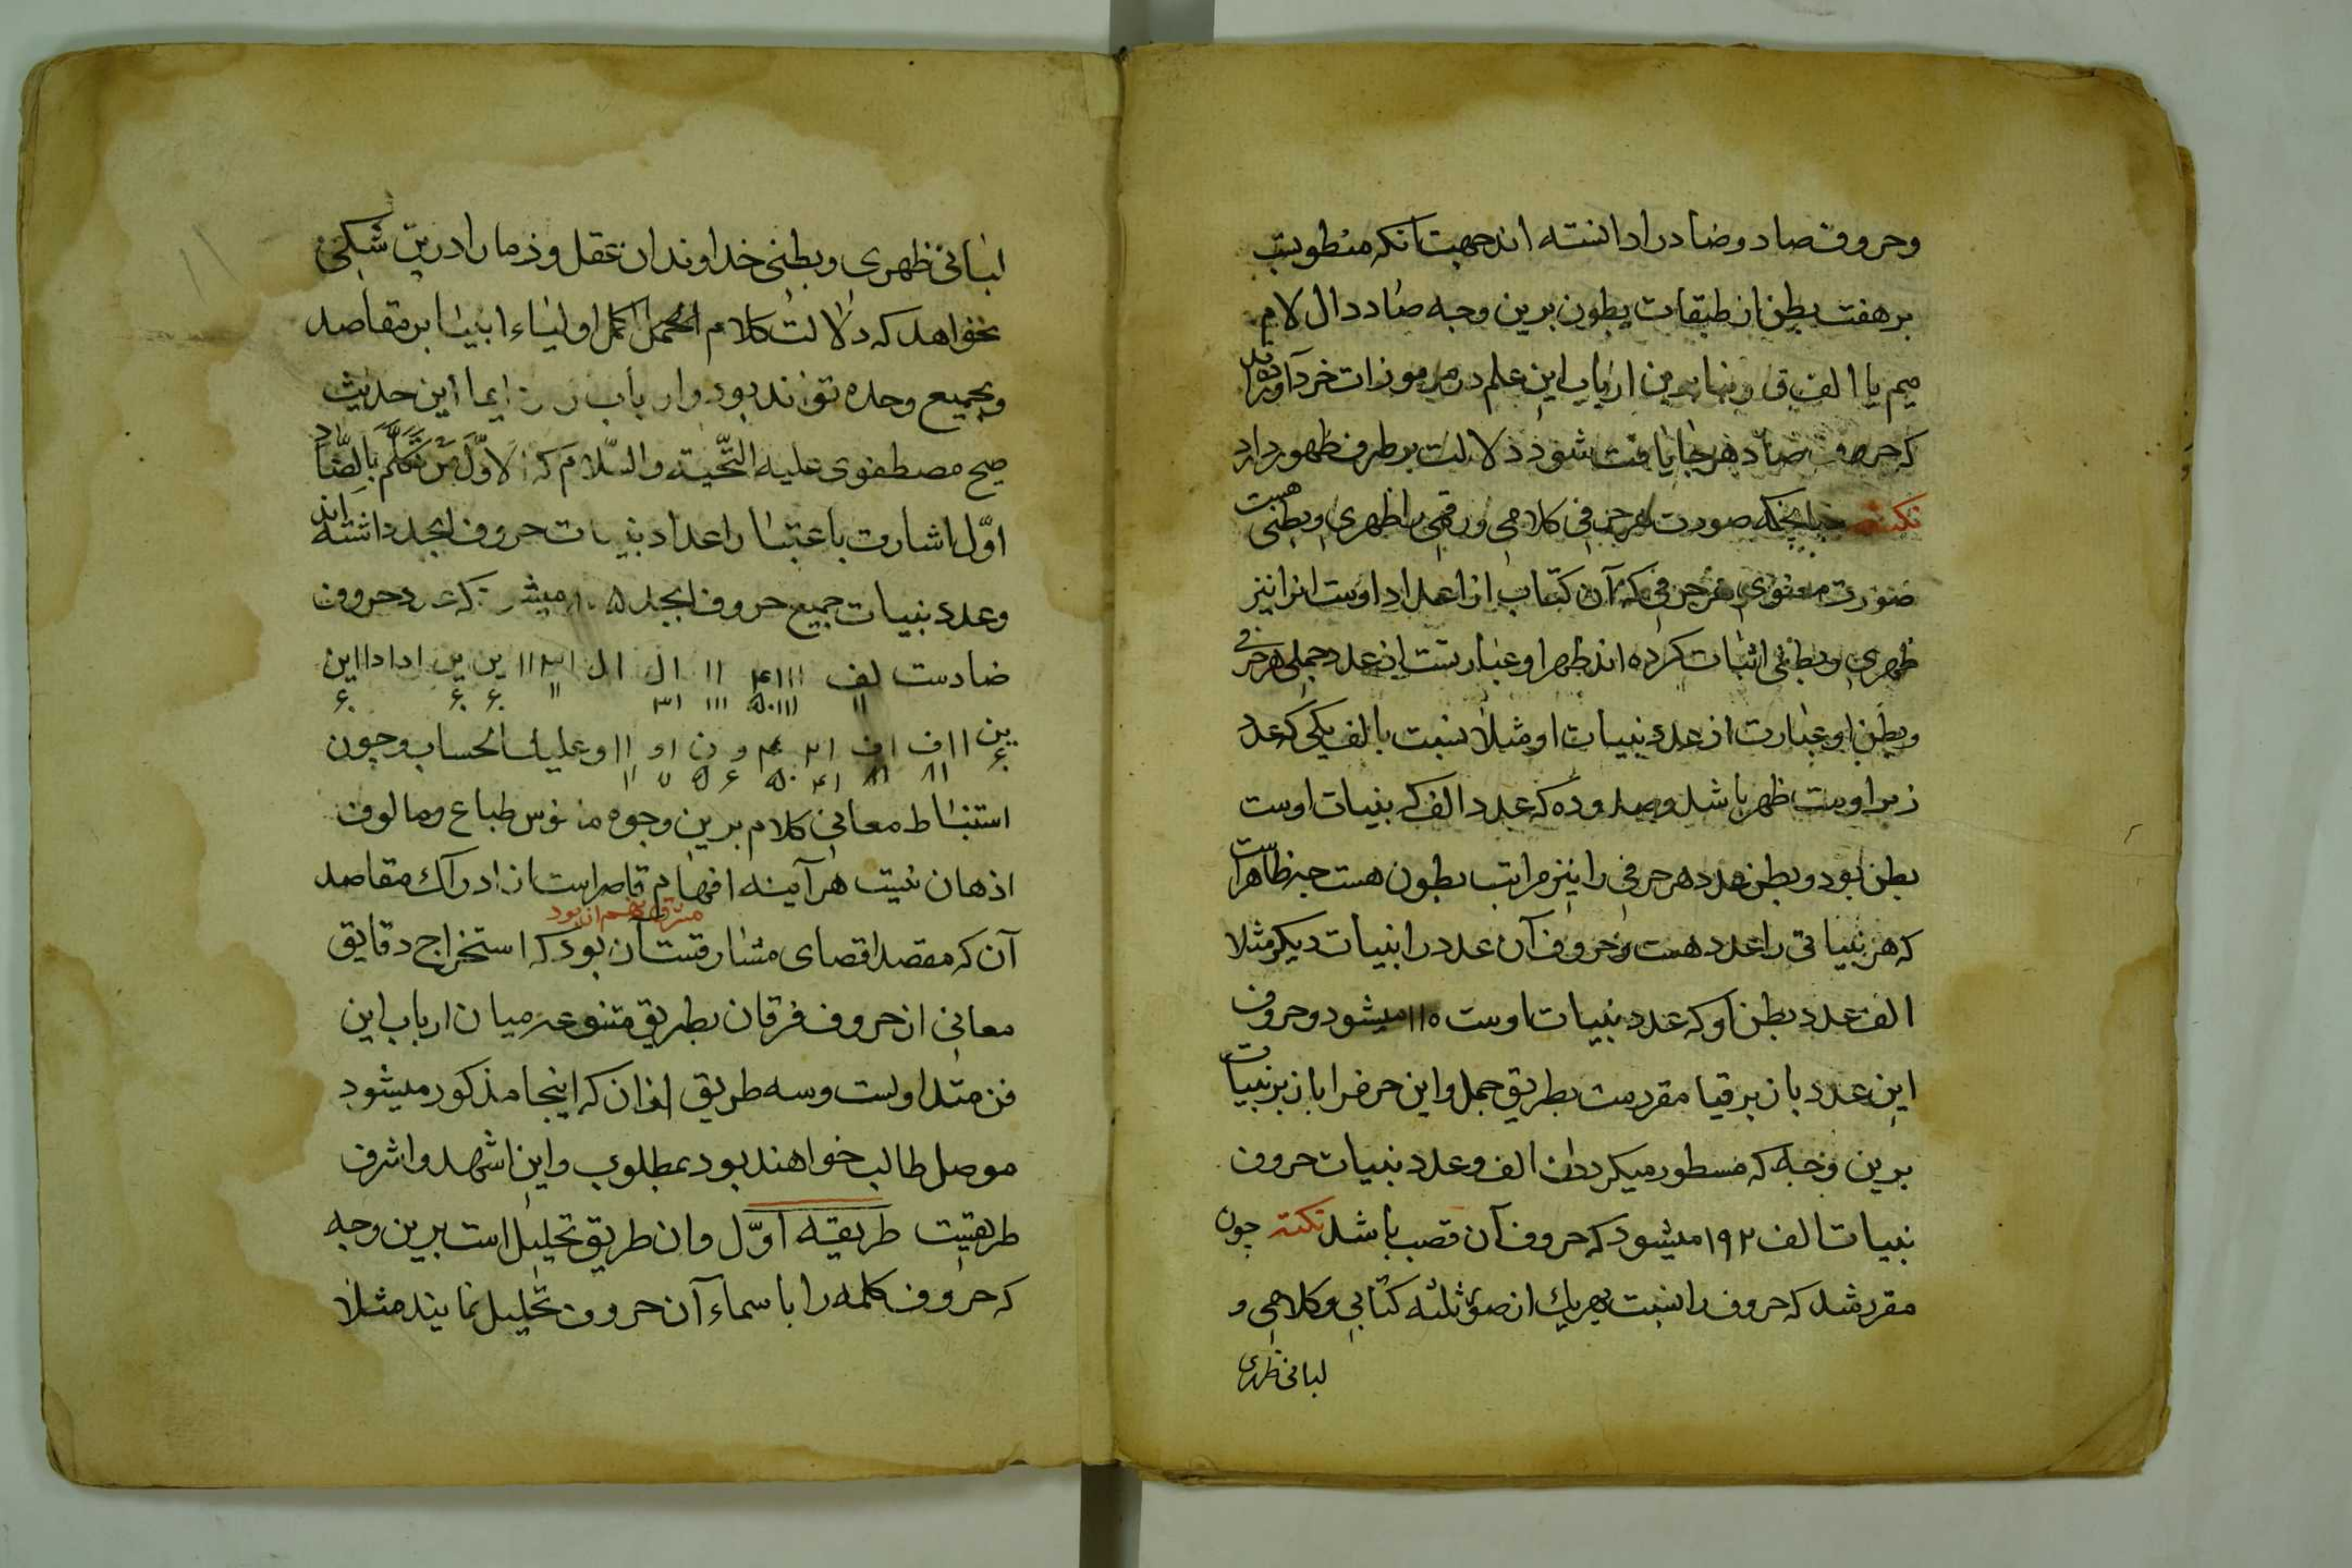 وحروف صاد وضاد را دانسته اند جهت انکه منطویست
بر هفت بطن از طبقات بطون برین وجه ضاد دال لام
میم یا الف ف ارباب این علم در مرموزات خرد آورده اند
که حرف ضاد هر جا یافت شود دلالت بر طرف ظهور دارد
نکته چنانچنکه صورت هر حرفی کلامی و رقمی را ظهری و بطنی هست
صورت معنوی هر حرفی که آن کتاب از اعداد اوست انرا نیز
ظهری و بطنی اثبات کرده اند ظهر او عبارتست از عدد جملی هر حرفی
و بطن او عبارت از عدد بنیات او مثلا نسبت با الف یکی که عدد
زبر اوست ظهر باشد و صد و ده که عدد الف که بنیات اوست
بطن بود و بطن عدد هر حرفی را نیز مراتب بطون هست چه ظاهر است
که هر بنیاتی را عدد هست و حروف آن عدد را بنیات دیگر مثلا
الف عدد بطن او که عدد بنیات اوست ۱۱۰ میشود و حروف
این عدد باز برقیا مقررست بطریق جمل و این حرف را باز بر بنیات
برین وجه که مسطور میکردد الف و عدد بنیات حروف
بنیات الف ۱۹۲ میشود که حروف آن قصب باشد نکته چون
مقرر شد که حروف را نسبت بهریک از صور ثلثه کتابی و کلامی و
لبابی ظهری
لبابی ظهری و بطنی خداوندان عقل و ذما را درین شکی
نخواهد که دلالت کلام اکمل اولیاء انبیا بر مقاصد
و بجمیع وحده تواند بود و ارباب ایما این حدیث
صح مصطفوی علیه التحیة والسلام که الاول من تکلم بالضاد
اول اشارت باعتبار اعداد بنیات حروف ابجد داشته اند
و عدد بنیات جمیع حروف ابجد ۸۰۵ میشود که عدد حروف
ضادست لف ااا ۱۴ اا ال ال ۱۳ اا ین ین اداداین
ین ااف اف ۱۲ م و ن او اا و علیک الحساب و چون
استنباط معانی کلام برین وجوه مانوس طباع و مالوف
اذهان نیست هر آینه افهام قاصر است از ادراک مقاصد
آن که مقصد اقصای مشارقست آن بود که استخراج دقایق
معانی از حروف فرقان بطریق متنوعه میان ارباب این
فن متداولست و سه طریق از ان که اینجا مذکور میشود
موصل طالب خواهند بود بمطلوب و این اشهد و اشرف
طریقیست طریقه اول و ان طریق تحلیل است برین وجه
که حروف کلمه را با سماء آن حروف تحلیل نمایند مثلا